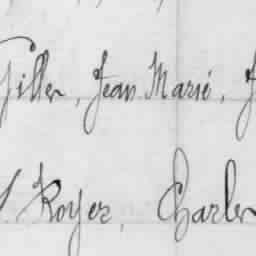 Giller, Jean Marié, J
Royer, Charles